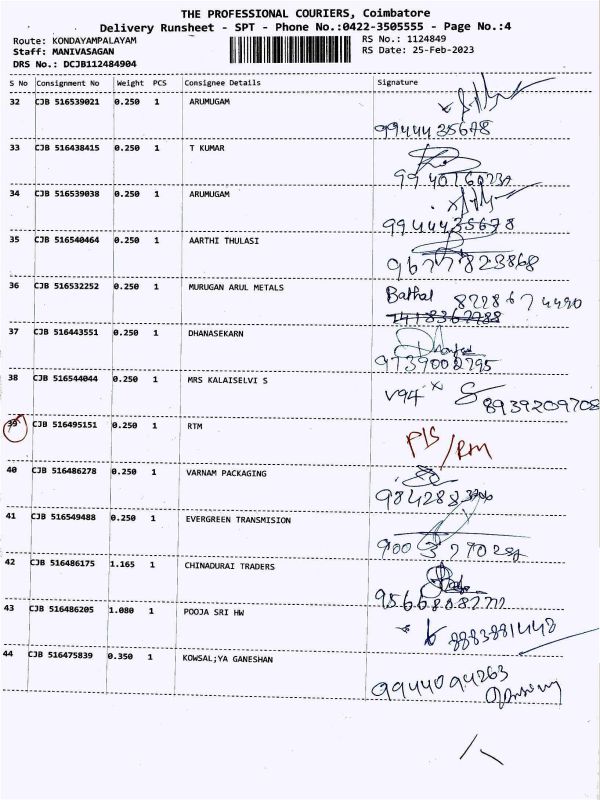 THE PROFESSIONAL COURIERS, Coimbatore
Delivery Runsheet - SPT - Phone No.:0422-3505555 - Page No.:4
Route: KONDAYAMPALAYAM RS No.: 1124849
Staff: MANIVASAGAN RS Date: 25-Feb-2023
DRS No.: DCJB112484904
S No Consignment No Weight PCS Consignee Details Signature
32 CJB 516539021 0.250 1 ARUMUGAM
9944435678
33 CJB 516438415 0.250 1 T KUMAR
34 CJB 516539038 0.250 1 ARUMUGAM
9944435678
35 CJB 516540464 0.250 1 AARTHI THULASI
9677823868
36 CJB 516532252 0.250 1 MURUGAN ARUL METALS
37 CJB 516443551 0.250 1 DHANASEKARN
9739002795
38 CJB 516544044 0.250 1 MRS KALAISELVI S
8939209708
39 CJB 516495151 0.250 1 RTM
40 CJB 516486278 0.250 1 VARNAM PACKAGING
41 CJB 516549488 0.250 1 EVERGREEN TRANSMISION
42 CJB 516486175 1.165 1 CHINADURAI TRADERS
43 CJB 516486205 1.080 1 POOJA SRI HW
44 CJB 516475839 0.350 1 KOWSAL;YA GANESHAN
9944094263